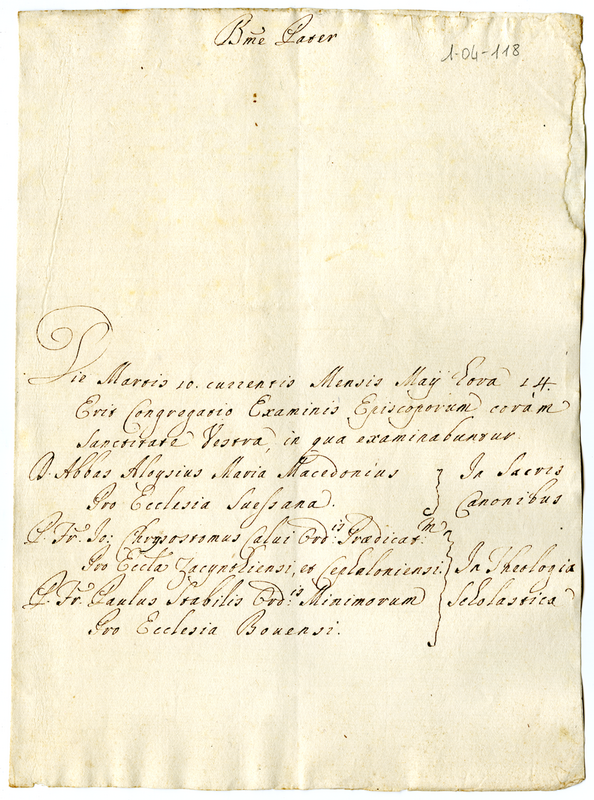 Bme Pater
1-04-118
Die Martis 10. currentis Mensis Maÿ hora 14.
Erit Congregatio Examinis Episcoporum coràm
Sanctitate Vestra, in qua examinabuntur.
D. Abbas Aloysius Maria Macedonius
Pro Ecclesia Suessana.
In Sacris
Canonibus
P. Fr. Io: Chrysostomus Calui Ord:is Prædicat:m
Pro Eccla Zacynthiensi, et Cephaloniensi.
P. Fr. Paulus Stabilis Ord:is Minimorum
Pro Ecclesia Bouensi.
In Theologia
Scholastica